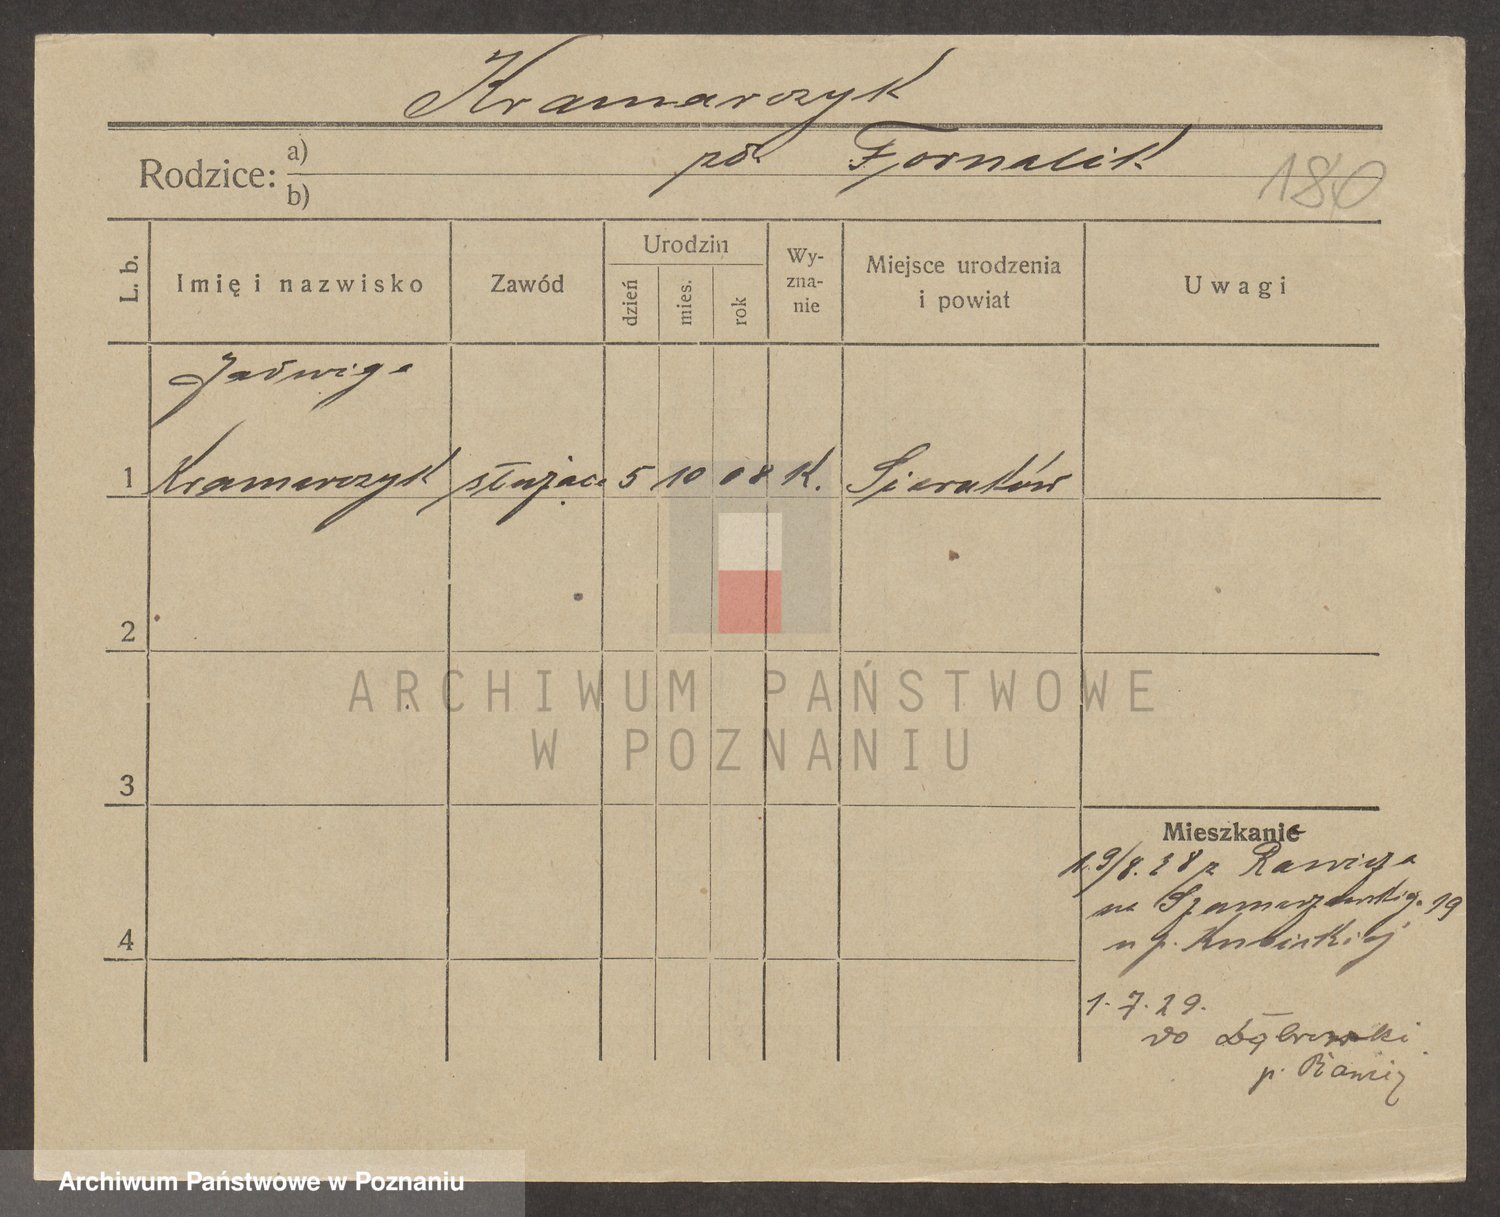 Kramarczyk
Rodzice: a)
b)
pó. Fornalik
180
L. b.
Imię i nazwisko
Zawód
Urodzin
dzień
mies.
rok
Wy-
zna-
nie
Miejsce urodzenia
i powiat
Uwagi
Jadwiga
1 Kramarczyk służąca 5 10 08 K. Sieraków
2
3
4
Mieszkanie
19/8.28 z Rawicza
na 19
u p.
1.7.29.
do
p. Rawicz
ARCHIWUM PAŃSTWOWE
W POZNANIU
Archiwum Państwowe w Poznaniu